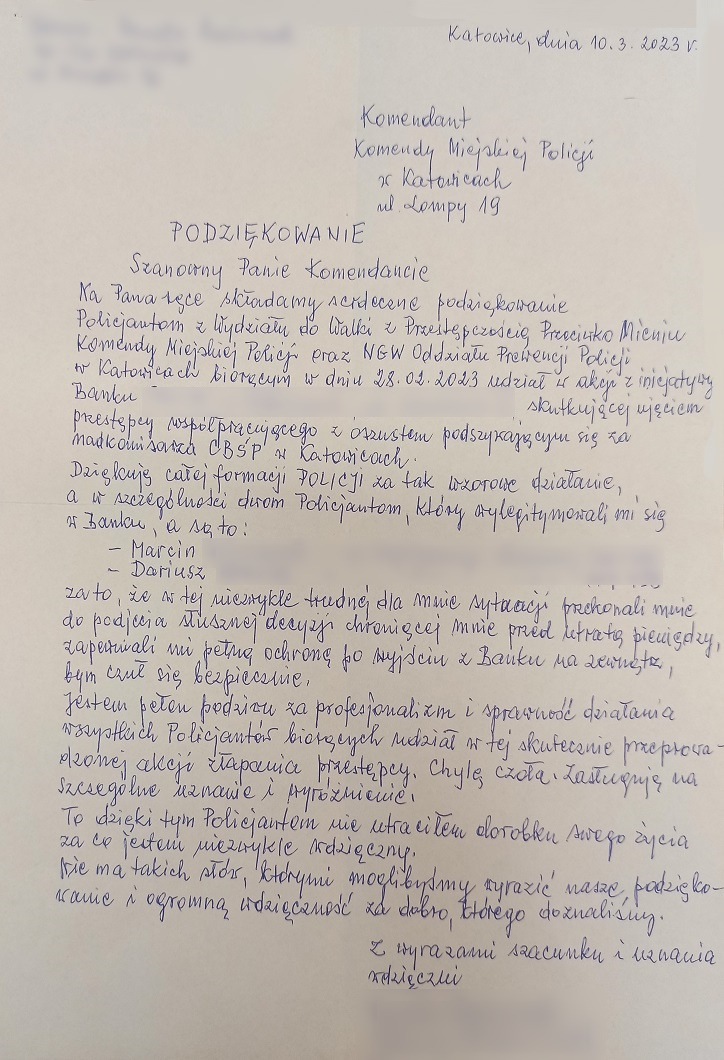 Katowice, dnia 10.3.2023 r.
Komendant
Komendy Miejskiej Policji
w Katowicach
ul. Lompy 19
PODZIĘKOWANIE
Szanowny Panie Komendancie
Na Pana ręce składamy serdeczne podziękowanie
Policjantom z Wydziału do Walki z Przestępczością Przeciwko Mieniu
Komendy Miejskiej Policji oraz NGW Oddziału Prewencji Policji
w Katowicach biorącym w dniu 28.02.2023 udział w akcji z inicjatywy
Banku skutkującej ujęciem
przestępcy współpracującego z oszustem podszywającym się za
nadkomisarza CBŚP w Katowicach.
Dziękuję całej formacji POLICJI za tak wzorowe działanie,
a w szczególności dwom Policjantom, który wylegitymowali mi się
w Banku, a są to:
- Marcin
- Dariusz
za to, że w tej niezwykle trudnej dla mnie sytuacji przekonali mnie
do podjęcia słusznej decyzji chroniącej mnie przed utratą pieniędzy,
zapewniali mi pełną ochronę po wyjściu z Banku na zewnątrz,
bym czuł się bezpiecznie.
Jestem pełen podziwu za profesjonalizm i sprawność działania
wszystkich Policjantów biorących udział w tej skutecznie przeprowa-
dzonej akcji złapania przestępcy. Chylę czoła. Zasługują na
szczególne uznanie i wyróżnienie.
To dzięki tym Policjantom nie utraciłem dorobku swego życia
za co jestem niezwykle wdzięczny.
Nie ma takich słów, którymi moglibyśmy wyrazić nasze podzięko-
wanie i ogromną wdzięczność za dobro, którego doznaliśmy.
Z wyrazami szacunku i uznania
wdzięczni